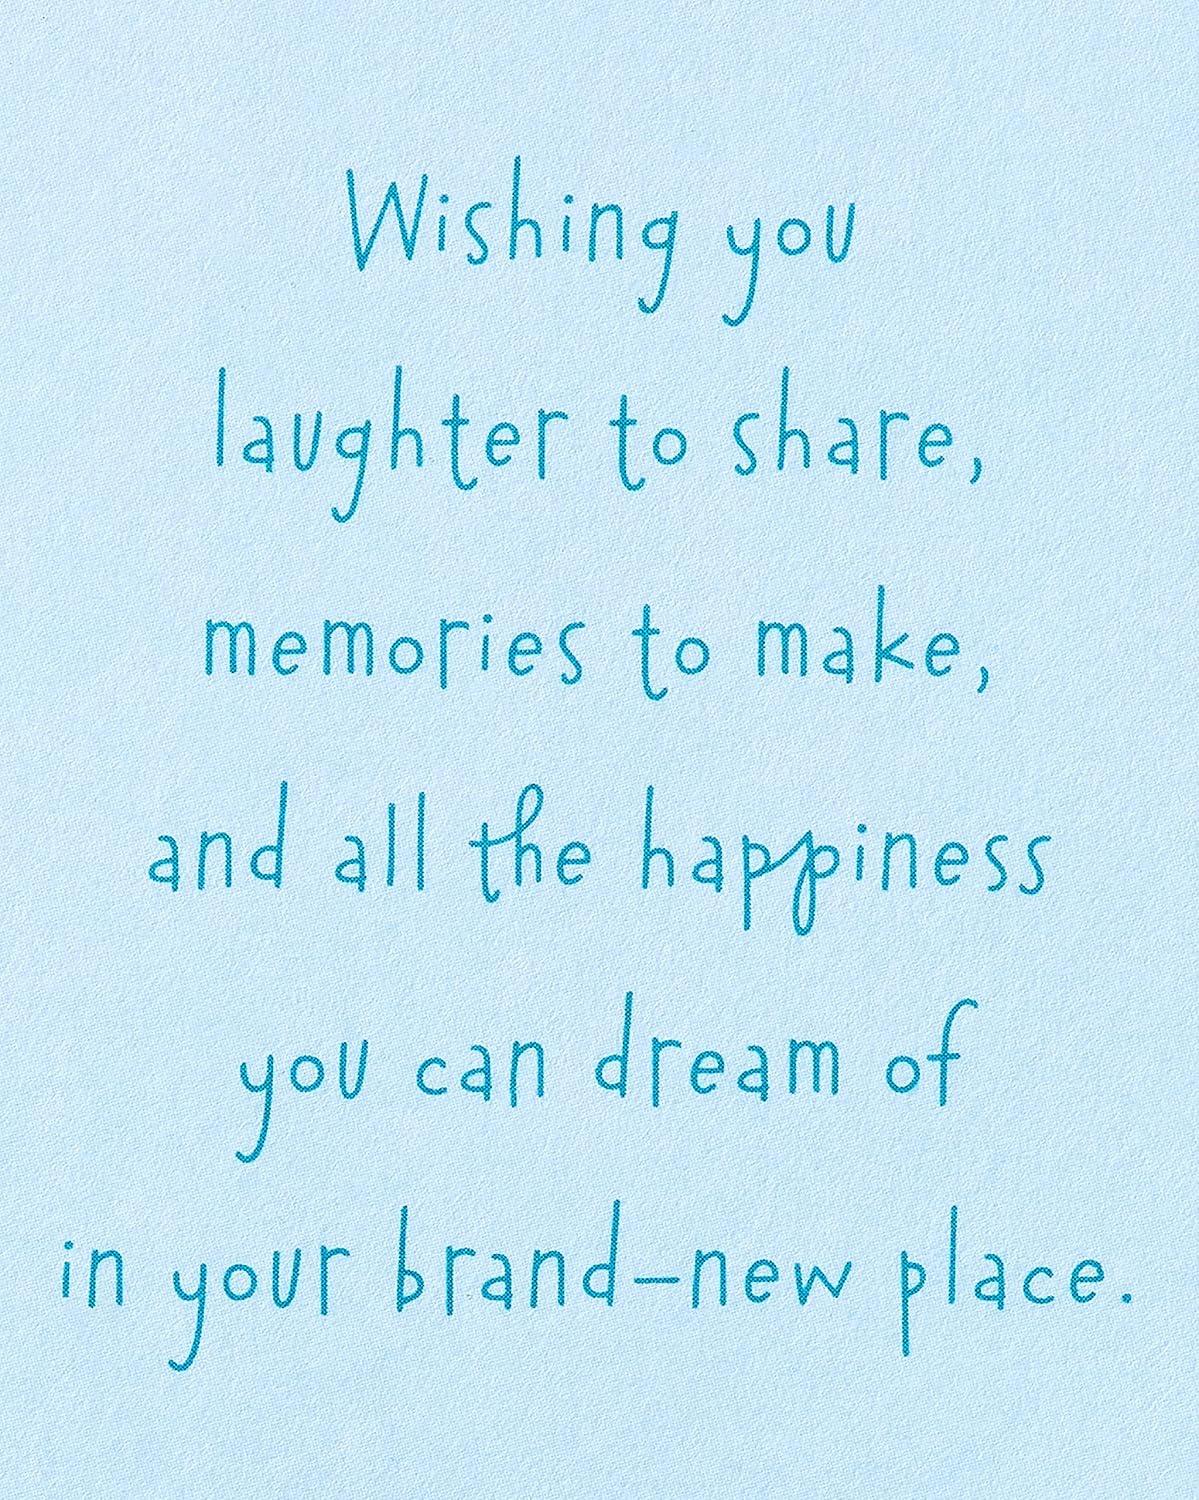 Wishing you
laughter to share,
memories to make,
and all the happiness
you can dream of
in your brand-new place.